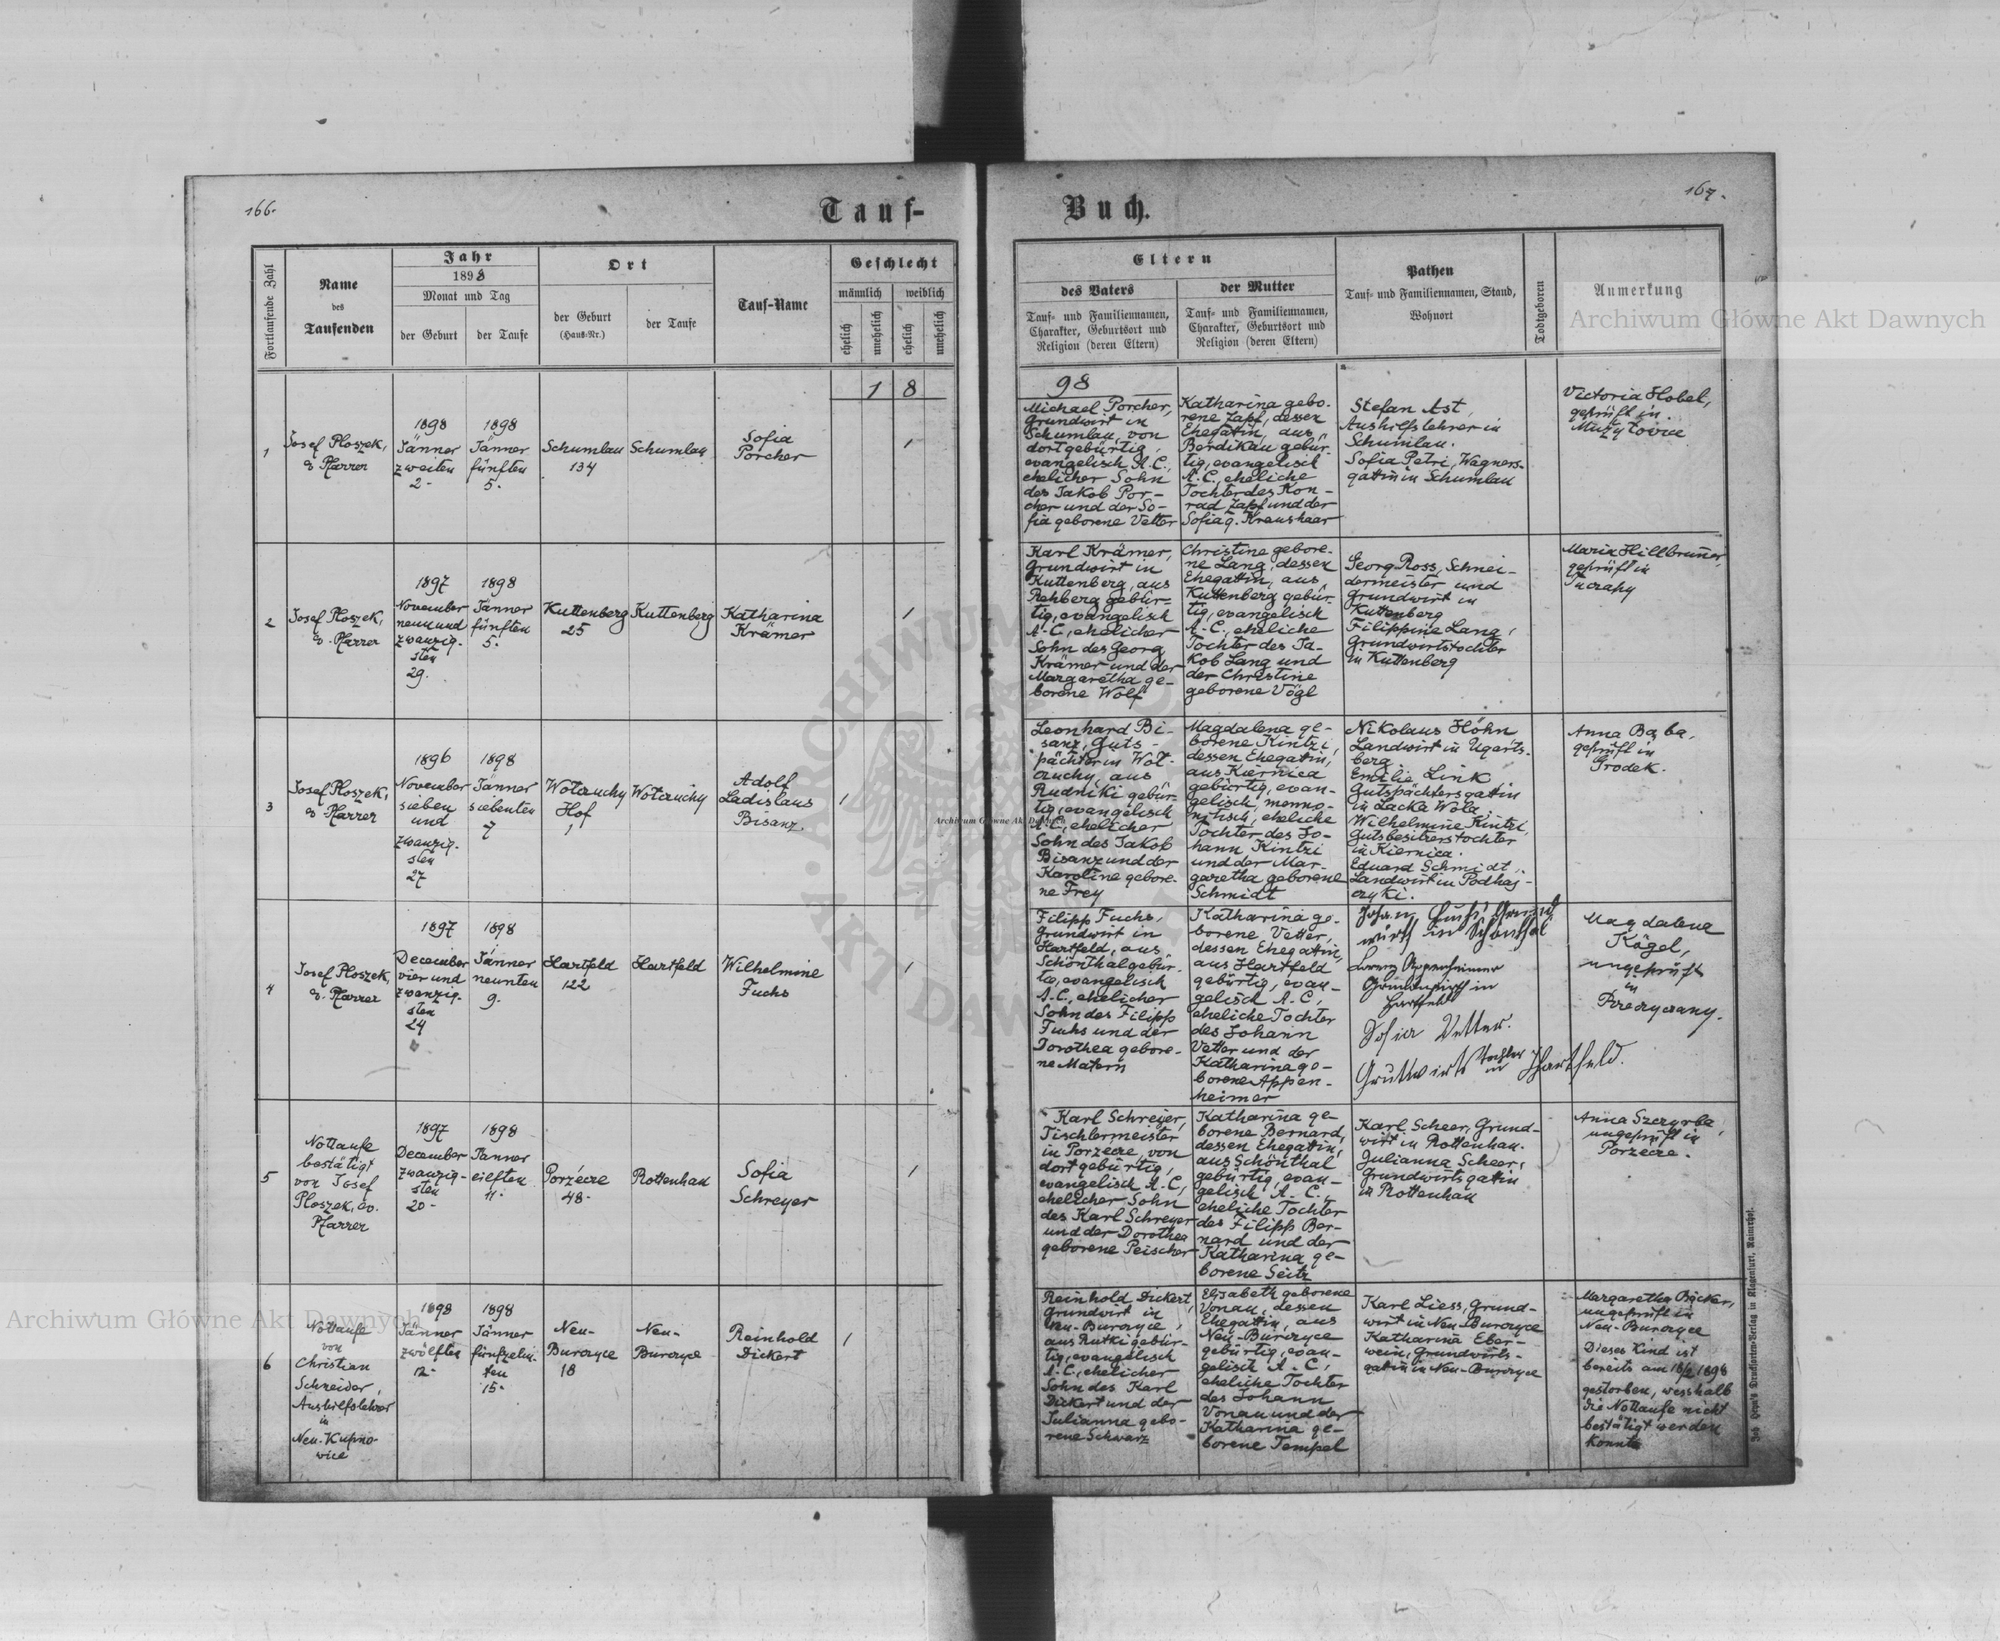 166.
167.
Tauf-
Buch.
Fortlaufende Zahl
Name
des
Taufenden
Jahr
1898
Monat und Tag
der Geburt
der Taufe
Ort
der Geburt
(Haus-Nr.)
der Taufe
Tauf-Name
Geschlecht
männlich
weiblich
ehelich
unehelich
ehelich
unehelich
Eltern
des Vaters
Tauf- und Familiennamen,
Charakter, Geburtsort und
Religion (deren Eltern)
der Mutter
Tauf- und Familiennamen,
Charakter, Geburtsort und
Religion (deren Eltern)
Pathen
Tauf- und Familiennamen, Stand,
Wohnort
Todtgeboren
Anmerkung
Archiwum Główne Akt Dawnych
1 8
98
1
Josef Ploszek,
ev. Pfarrer
1898
Jänner
zweiten
2.
1898
Jänner
fünften
5.
Schumlau
134
Schumlau
Sofia
Porcher
1
Michael Porcher,
Grundwirt in
Schumlau, von
dort gebürtig,
evangelisch A.C.,
ehelicher Sohn
des Jakob Por-
cher und der So-
fia geborene Vetter
Katharina gebo-
rene Zapf, dessen
Ehegatin, aus
Berdikau gebür-
tig, evangelisch
A.C., eheliche
Tochter des Kon-
rad Zapf und der
Sofia g. Kraushaar
Stefan Ast,
Aushilfslehrer in
Schumlau.
Sofia Petri, Wagners-
gattin in Schumlau
Victoria Hobel,
geprüft in
Mużyłowice
2
Josef Ploszek,
ev. Pfarrer
1897
November
neunund
zwanzig-
sten
29.
1898
Jänner
fünften
5.
Kuttenberg
25
Kuttenberg
Katharina
Krämer
1
Karl Krämer,
Grundwirt in
Kuttenberg, aus
Rehberg gebür-
tig, evangelisch
A.C., ehelicher
Sohn des Georg
Krämer und der
Margaretha ge-
borene Wolf
Christine gebore-
ne Lang, dessen
Ehegatin, aus
Kuttenberg gebür-
tig, evangelisch
A.C., eheliche
Tochter des Ja-
kob Lang und
der Christine
geborene Vögl
Georg Ross, Schnei-
dermeister und
Grundwirt in
Kuttenberg
Filippine Lang,
Grundwirtstochter
in Kuttenberg
Maria Hillbrunner,
geprüft in
3
Josef Ploszek,
ev. Pfarrer
1896
November
sieben
und
zwanzig-
sten
27
1898
Jänner
siebenten
7
Wołczuchy
Hof
1
Wołczuchy
Adolf
Ladislaus
Bisanz.
1
Leonhard Bi-
sanz, Guts-
pächter in Woł-
czuchy, aus
Rudniki gebür-
tig, evangelisch
A.C., ehelicher
Sohn des Jakob
Bisanz und der
Karoline gebore-
ne Frey
Magdalena ge-
borene Kintzi,
dessen Ehegatin,
aus Kiernica
gebürtig, evan-
gelisch, menno-
nitisch, eheliche
Tochter des Jo-
hann Kintzi
und der Mar-
garetha geborene
Schmidt
Nikolaus Höhn
Landwirt in Ugarts-
berg.
Emilie Link
Gutspächtersgattin
in Lacka Wola
Wilhelmine Kintzi,
Gutsbesitzerstochter
in Kiernica.
Eduard Schmidt,
Landwirt in Podhaj-
czyki.
Anna Baba,
geprüft in
Grodek.
Archiwum Główne Akt Dawnych
4
Josef Ploszek,
ev. Pfarrer
1897
December
vier und
zwanzig-
sten
24
1898
Jänner
neunten
9.
Hartfeld
122
Hartfeld
Wilhelmine
Fuchs
1
Filipp Fuchs,
Grundwirt in
Hartfeld, aus
Schönthal gebür-
tig, evangelisch
A.C., ehelicher
Sohn des Filipp
Fuchs und der
Dorothea gebore-
ne Matern
Katharina ge-
borene Vetter,
dessen Ehegattin,
aus Hartfeld
gebürtig, evan-
gelisch A.C.,
eheliche Tochter
des Johann
Vetter und der
Katharina ge-
borene Appen-
heimer
Johan Fuchs Grund
wirth in Schönthal
Lorenz Appenheimer
Grundwirth in
Hartfeld
Sofia Vetter.
Grutwirts tochter
in Hartfeld.
Magdalena
Kögel,
ungeprüft
in
5
Nottaufe
bestätigt
von Josef
Ploszek, ev.
Pfarrer
1897
December
zwanzig-
sten
20-
1898
Jänner
eilften
11.
Porzécze
48.
Rottenhan
Sofia
Schreyer
1
Karl Schreyer,
Tischlermeister
in Porzecze, von
dort gebürtig,
evangelisch A.C.,
ehelicher Sohn
des Karl Schreyer
und der Dorothea
geborene Peischer
Katharina ge-
borene Bernard,
dessen Ehegattin,
aus Schönthal
gebürtig, evan-
gelisch A.C.,
eheliche Tochter
des Filipp Ber-
nard und der
Katharina ge-
borene Seitz
Karl Scheer, Grund-
wirt in Rottenhan.
Julianna Scheer,
Grundwirtsgattin
in Rottenhan
Anna Szczyrba,
ungeprüft in
Porzecze.
6
Nottaufe
von
Christian
Schneider,
Aushilfslehrer
in
Neu-Kupno-
wice
1898
Jänner
zwölften
12-
1898
Jänner
fünfzehn-
ten
15-
Neu-
Burczyce
18
Neu-
Burczyce
Reinhold
Dickert
1
Reinhold Dickert,
Grundwirt in
Neu-Burczyce,
aus Rutki gebür-
tig, evangelisch
A.C., ehelicher
Sohn des Karl
Dickert und der
Julianna gebo-
rene Schwarz
Elisabeth geborene
Vonau, dessen
Ehegattin, aus
Neu-Burczyce
gebürtig, evan-
gelisch A.C.,
eheliche Tochter
des Johann
Vonau und der
Katharina ge-
borene Tempel
Karl Liess, Grund-
wirt in Neu-Burczyce
Katharina Eber-
wein, Grundwirts-
gattin in Neu-Burczyce
Margaretha Bäcker,
ungeprüft in
Neu-Burczyce
Dieses Kind ist
bereits am 18/2 1898
gestorben, wesshalb
die Nottaufe nicht
bestätigt werden
konnte
Archiwum Główne Akt Dawnych